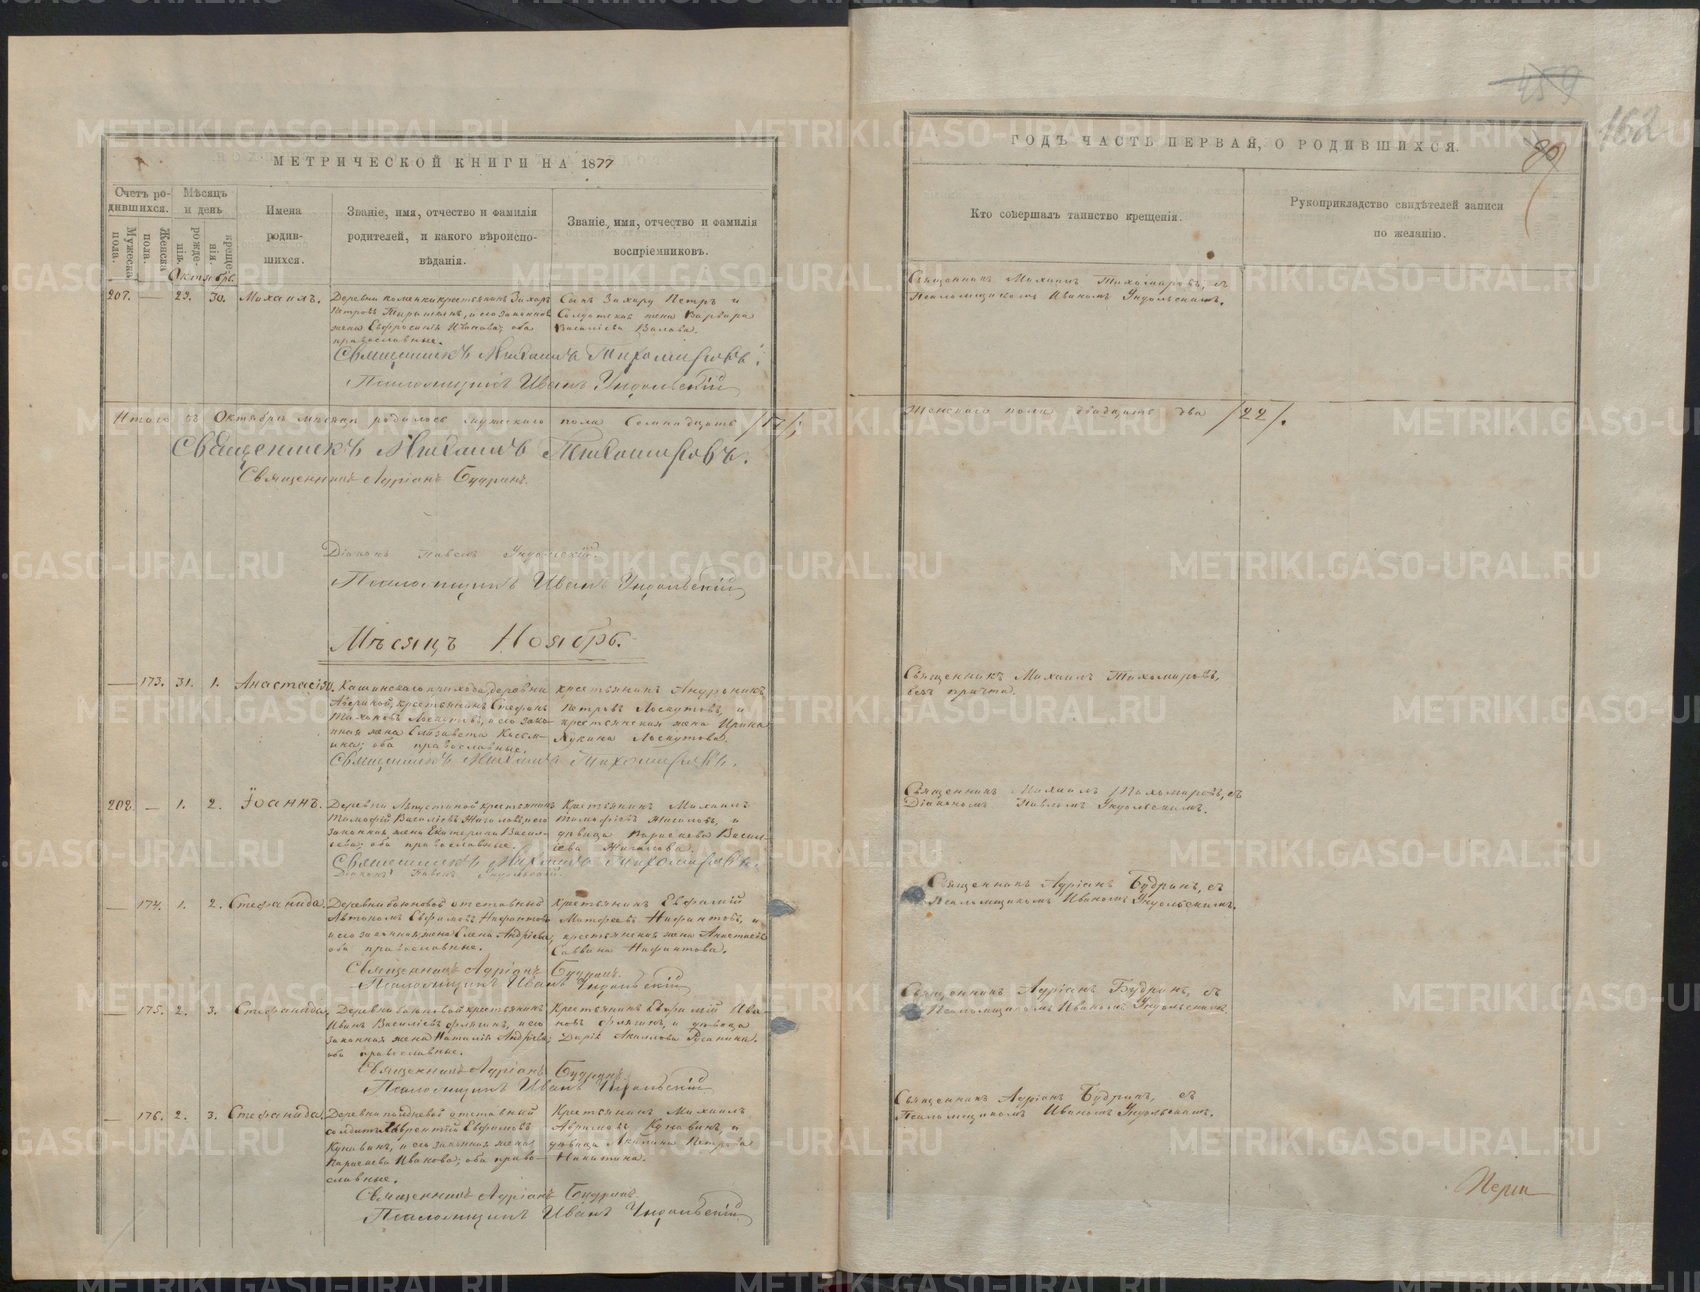 МЕТРИЧЕСКОЙ КНИГИ НА 1877
Счетъ ро-
дившихся.
Мужеска
пола.
Женска
пола.
Мѣсяцъ
и день
рожде-
нія.
креще-
нія.
Имена
родив-
шихся.
Званіе, имя, отчество и фамилія
родителей, и какого вѣроиспо-
вѣданія.
Званіе, имя, отчество и фамилія
воспріемниковъ.
Октябрь.
207. — 29. 30. Михаилъ.
Деревни крестьянинъ Захаръ
Петровъ и его законная
жена Евфросинія Иванова; оба
православные.
Сынъ Захару Петръ и
Солдатская жена Варвара
Василіева
Священникъ Михаилъ Тихомировъ.
Псаломщикъ Иванъ Ундольскій
Итого въ Октябрѣ мѣсяцѣ родилось мужескаго пола Семнадцать /17/;
Священникъ Михаилъ Тихомировъ.
Священникъ Адріанъ Будринъ.
Діаконъ Павелъ Ундольскій.
Псаломщикъ Иванъ Ундольскій
Мѣсяцъ Ноябрь.
— 173. 31. 1. Анастасія.
Кашинскаго прихода, деревни
крестьянинъ Стефанъ
Тихоновъ Лоскутовъ, и его зако-
нная жена Елизавета Козьм-
ина; оба православные.
крестьянинъ Андроникъ
Петровъ Лоскутовъ, и
крестьянская жена Ирина
Лукина Лоскутова.
Священникъ Михаилъ Тихомировъ.
208. — 1. 2. Іоаннъ.
Деревни крестьянинъ
Тимофей Василіевъ Жигаловъ, и его
законная жена Екатерина Васил-
іева; оба православные.
Крестьянинъ Михаилъ
Тимофіевъ Жигаловъ, и
дѣвица Параскева Васил-
іева Жигалова.
Священникъ Михаилъ Тихомировъ.
Діаконъ Павелъ Ундольскій.
— 174. 1. 2. Стефанида.
Деревни отставный
Автономъ Евфимовъ Нифантовъ
и его законная жена Елена Андріева;
оба православные.
крестьянинъ Евфимій
Матфеевъ Нифантовъ, и
крестьянская жена Анастасія
Саввина Нифантова.
Священникъ Адріанъ Будринъ.
Псаломщикъ Иванъ Ундольскій
— 175. 2. 3. Стефанида
Деревни крестьянинъ
Иванъ Василіевъ Флягинъ, и его
законная жена Наталія Андріева;
оба православные.
Крестьянинъ Евфимій Ива-
новъ Флягинъ, и дѣвица
Дарія Акилова
Священникъ Адріанъ Будринъ
Псаломщикъ Иванъ Ундольскій
— 176. 2. 3. Стефанида.
Деревни отставный
солдатъ Лаврентій Евфимовъ
Кунавинъ, и его законная жена
Параскева Иванова; оба право-
славные.
Крестьянинъ Михаилъ
Абрамовъ Кунавинъ, и
дѣвица Акилина Петрова
Никитина.
Священникъ Адріанъ Будринъ
Псаломщикъ Иванъ Ундольскій
ГОДЪ ЧАСТЬ ПЕРВАЯ, О РОДИВШИХСЯ.
162
Кто совершалъ таинство крещенія.
Рукоприкладство свидѣтелей записи
по желанію.
Священникъ Михаилъ Тихомировъ, съ
Псаломщикомъ Иваномъ Ундольскимъ.
Женскаго пола двадцать два /22/.
Священникъ Михаилъ Тихомировъ,
безъ причта.
Священникъ Михаилъ Тихомировъ, съ
Діакономъ Павломъ Ундольскимъ.
Священникъ Адріанъ Будринъ, съ
Псаломщикомъ Иваномъ Ундольскимъ.
Священникъ Адріанъ Будринъ, съ
Псаломщикомъ Иваномъ Ундольскимъ
Священникъ Адріанъ Будринъ, съ
Псаломщикомъ Иваномъ Ундольскимъ.
METRIKI.GASO-URAL.RU